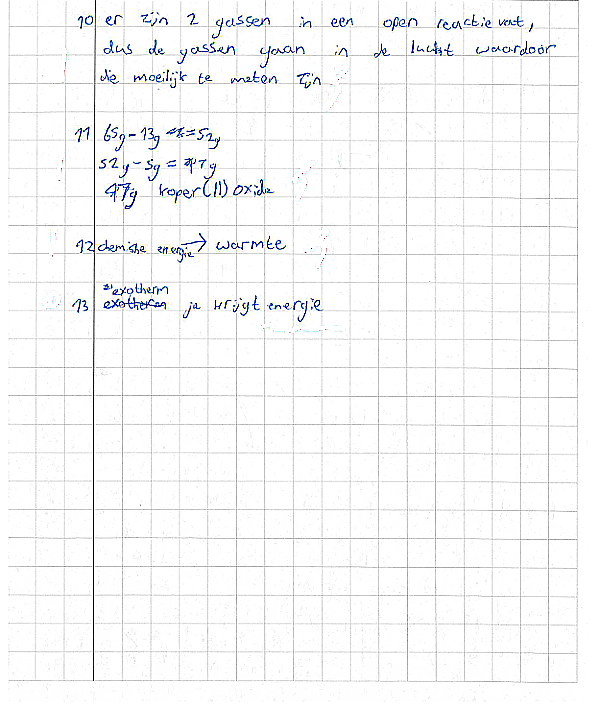 10 er zijn 2 gassen in een open reactie vat,
dus de gassen gaan in de lucht waardoor
die moeilijk te meten zijn
11 65g-13g = 52g
52g - 5g = 47g
47g koper(II) oxide
12 chemishe energie → warmte
exotherm
13 exotheren je krijgt energie